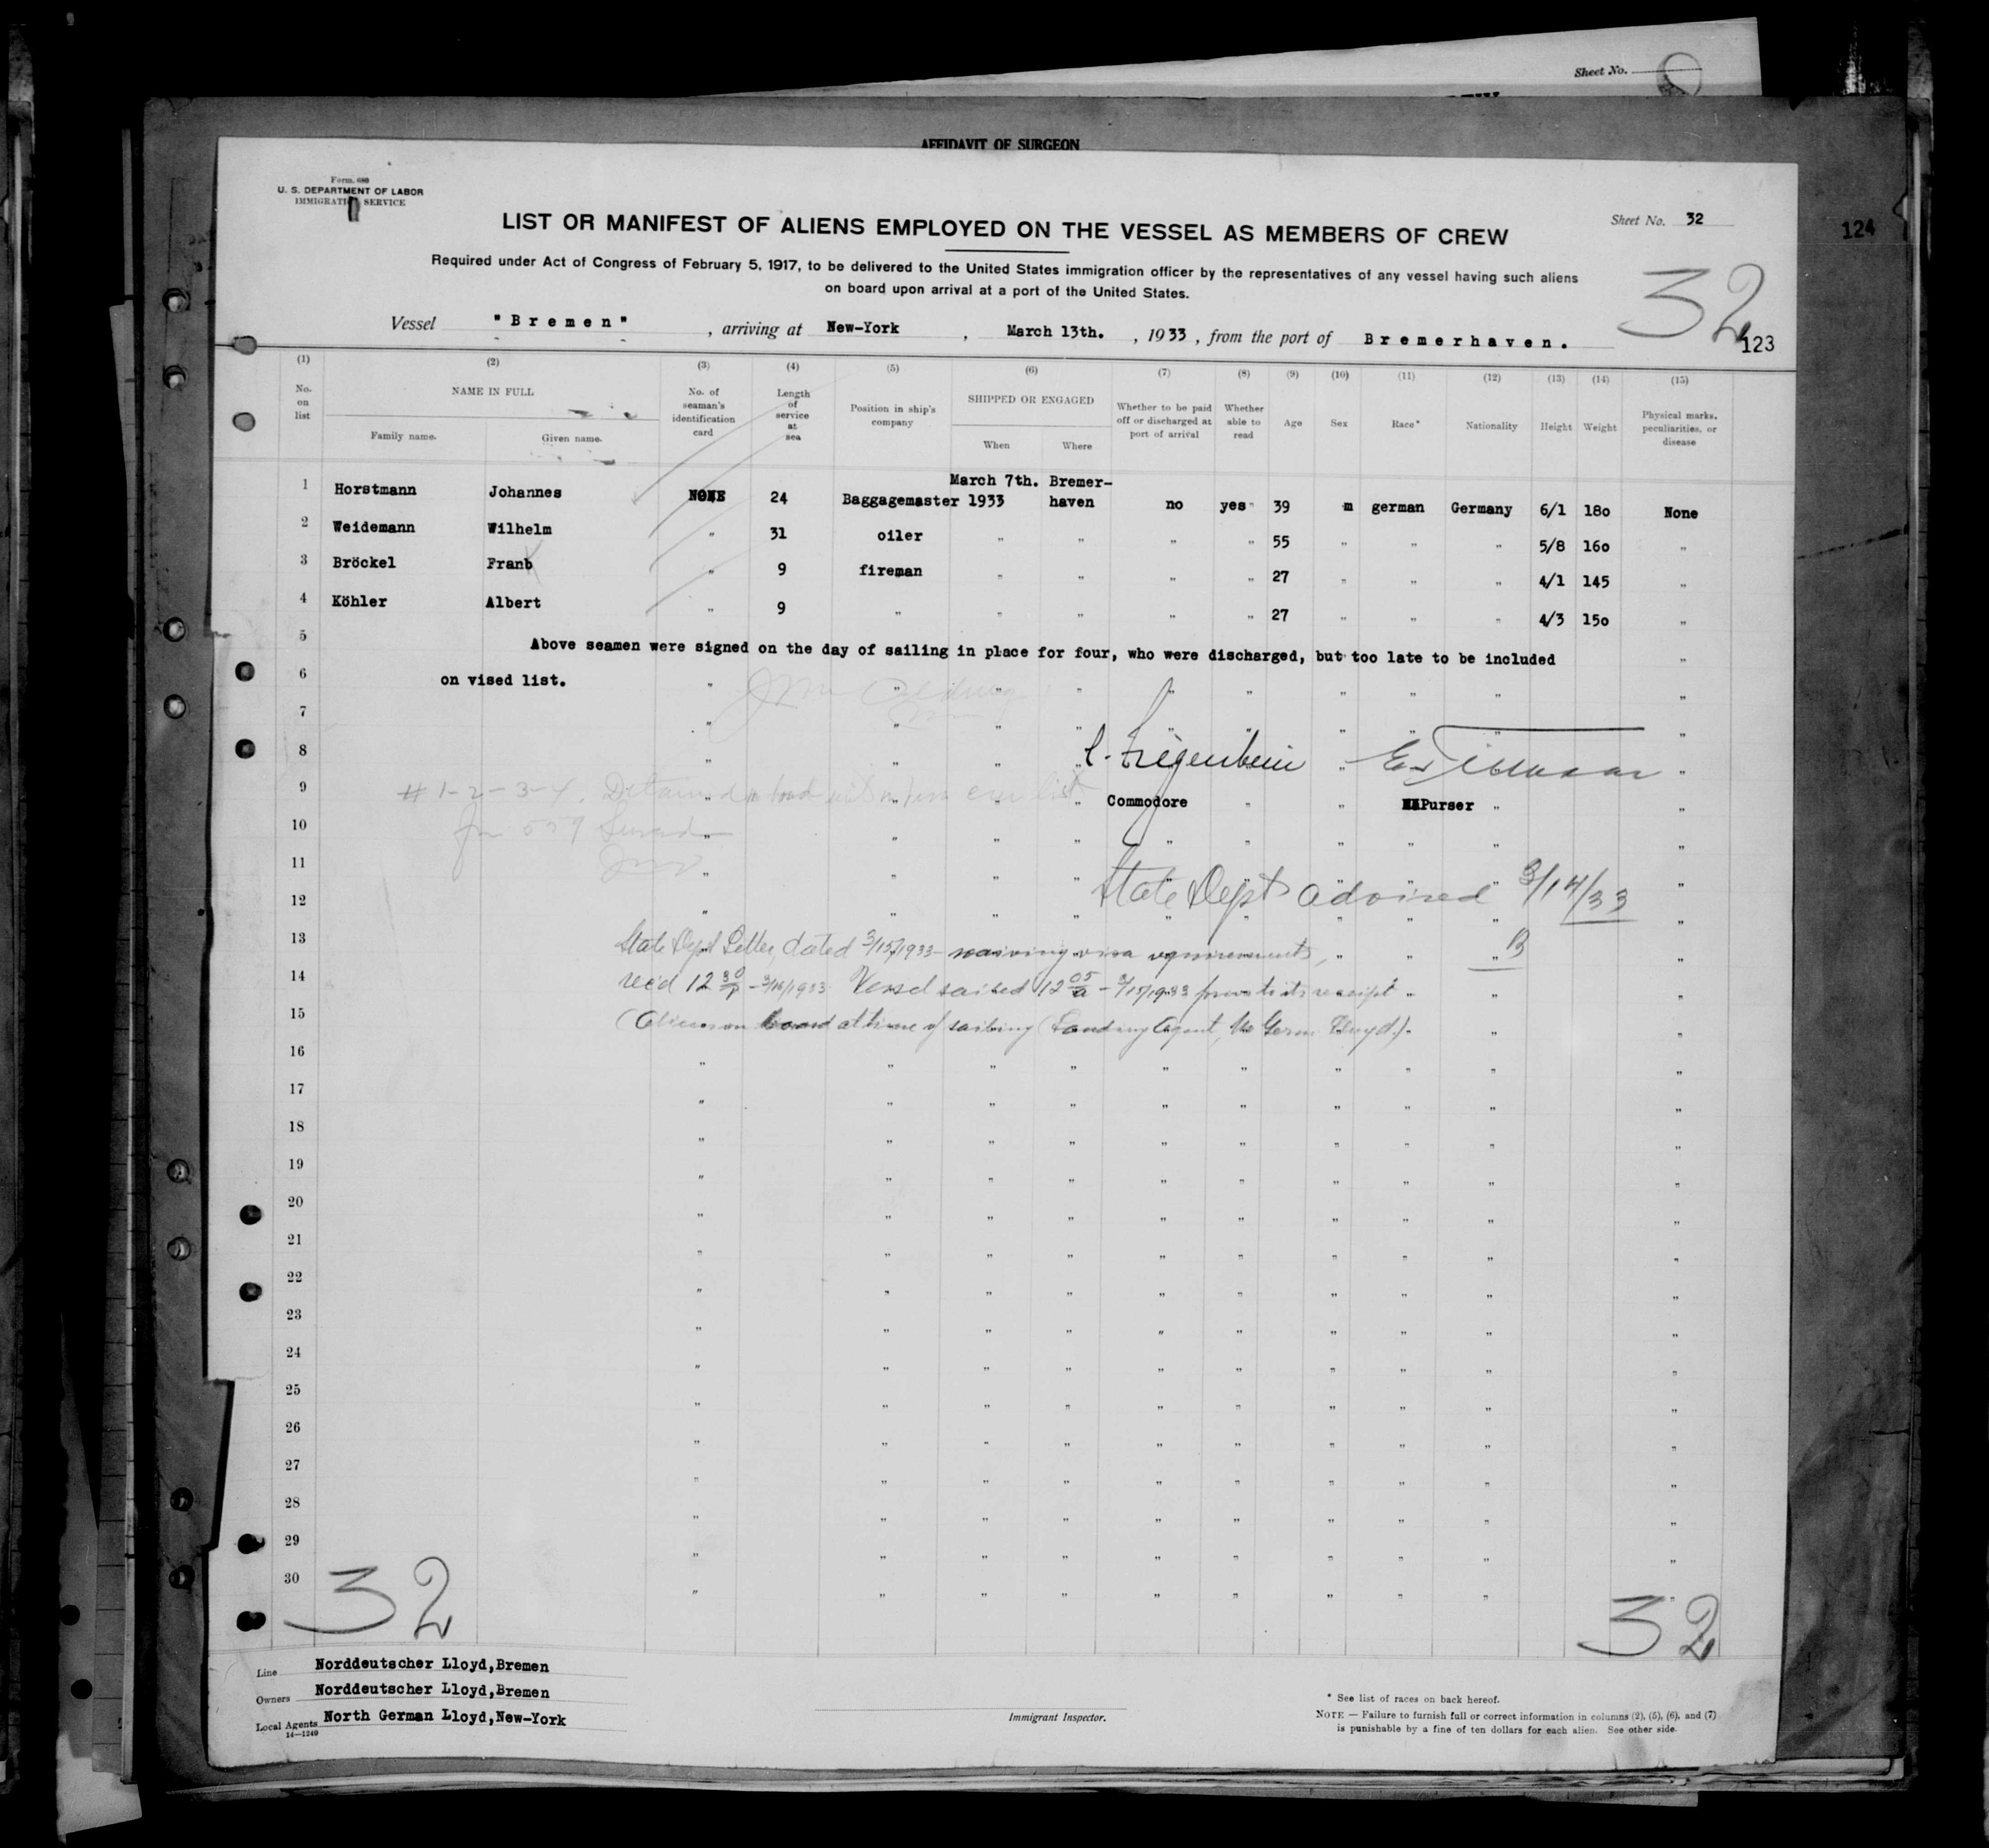 Sheet No.
AFFIDAVIT OF SURGEON
Form 680
U. S. DEPARTMENT OF LABOR
IMMIGRATION SERVICE
Sheet No. 32
124
LIST OR MANIFEST OF ALIENS EMPLOYED ON THE VESSEL AS MEMBERS OF CREW
Required under Act of Congress of February 5, 1917, to be delivered to the United States immigration officer by the representatives of any vessel having such aliens
on board upon arrival at a port of the United States.
32
Vessel "Bremen", arriving at New-York, March 13th., 1933, from the port of Bremerhaven.
123
(1) (2) (3) (4) (5) (6) (7) (8) (9) (10) (11) (12) (13) (14) (15)
No. on list NAME IN FULL Family name. Given name. No. of seaman's identification card Length of service at sea Position in ship's company SHIPPED OR ENGAGED When Where Whether to be paid off or discharged at port of arrival Whether able to read Age Sex Race* Nationality Height Weight Physical marks, peculiarities, or disease
1 Horstmann Johannes NONE 24 Baggagemaster March 7th. 1933 Bremer-haven no yes 39 m german Germany 6/1 180 None
2 Weidemann Wilhelm " 31 oiler " " " " 55 " " " 5/8 160 "
3 Bröckel Franb " 9 fireman " " " " 27 " " " 4/1 145 "
4 Köhler Albert " 9 " " " " " 27 " " " 4/3 150 "
5 Above seamen were signed on the day of sailing in place for four, who were discharged, but too late to be included "
6 on vised list. " " " " " " " " " "
7 " " " " " " " " " "
8 " " " C. Ziegenbein " "
9 # 1-2-3-4. " " " " Commodore " " Purser " "
10 for 559 " " " " " " " " " "
11 " " " " " " " " " "
12 " " " " State Dept advised 3/14/33 "
13 State Dept Letter, dated 3/15/1933 - waiving visa requirements, " " " B "
14 rec'd 12 30/P - 3/16/1933 Vessel sailed 12 05/a - 3/15/1933 prior to its receipt " " "
15 (Aliens on board at time of sailing (Landing Agent, No Germ Lloyd.) " " "
16 " " " " " " " " " "
17 " " " " " " " " " "
18 " " " " " " " " " "
19 " " " " " " " " " "
20 " " " " " " " " " "
21 " " " " " " " " " "
22 " " " " " " " " " "
23 " " " " " " " " " "
24 " " " " " " " " " "
25 " " " " " " " " " "
26 " " " " " " " " " "
27 " " " " " " " " " "
28 " " " " " " " " " "
29 " " " " " " " " " "
30 " " " " " " " " "
32
32
Line Norddeutscher Lloyd,Bremen
Owners Norddeutscher Lloyd,Bremen
Local Agents North German Lloyd,New-York
14—1240
Immigrant Inspector.
* See list of races on back hereof.
NOTE — Failure to furnish full or correct information in columns (2), (5), (6), and (7)
is punishable by a fine of ten dollars for each alien. See other side.